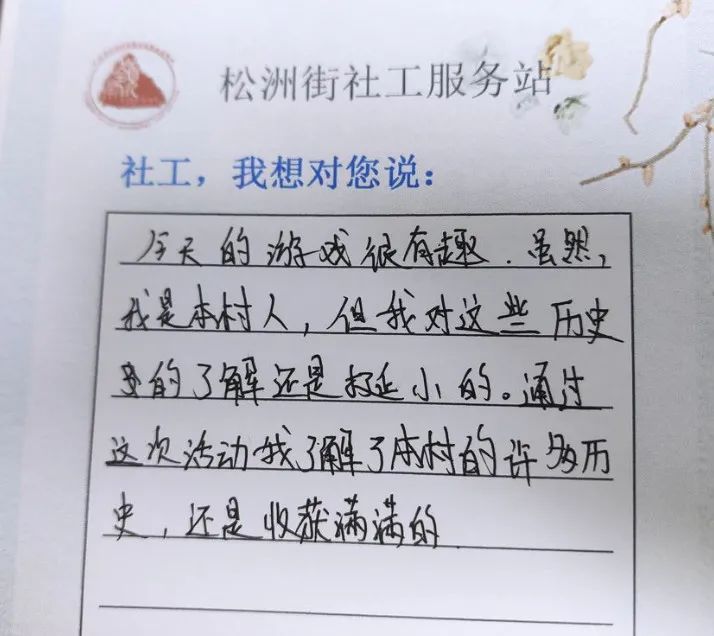 松洲街社工服务站
社工，我想对您说：
今天的游戏很有趣．虽然，
我是本村人，但我对这些历史
的了解还是挺小的。通过
这次活动我了解了本村的许多历
史，还是收获满满的